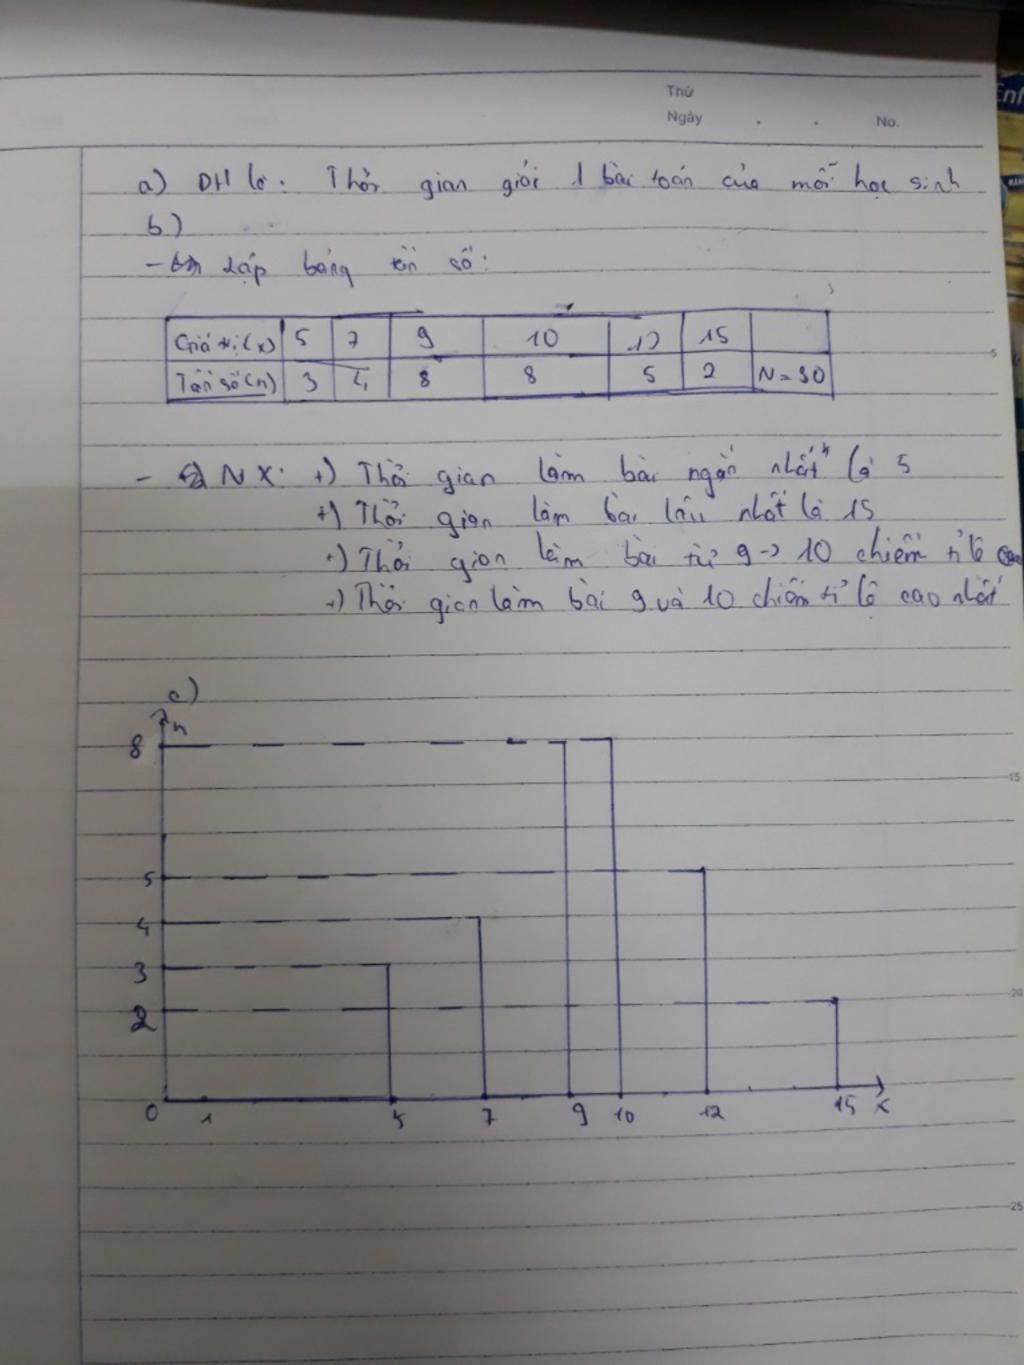 Thứ
Ngày . . No.
a) DH là: Thời gian giải 1 bài toán của mỗi học sinh
b)
- Lập bảng tần số:
Giá trị (x) 5 7 9 10 12 15
Tần số (n) 3 4 8 8 5 2 N = 30
5
- NX: +) Thời gian làm bài ngắn nhất là 5
+) Thời gian làm bài lâu nhất là 15
+) Thời gian làm bài từ 9 -> 10 chiếm tỉ lệ
+) Thời gian làm bài 9 và 10 chiếm tỉ lệ cao nhất
c)
n
8
15
5
4
3
20
2
0 1 5 7 9 10 12 15 x
25